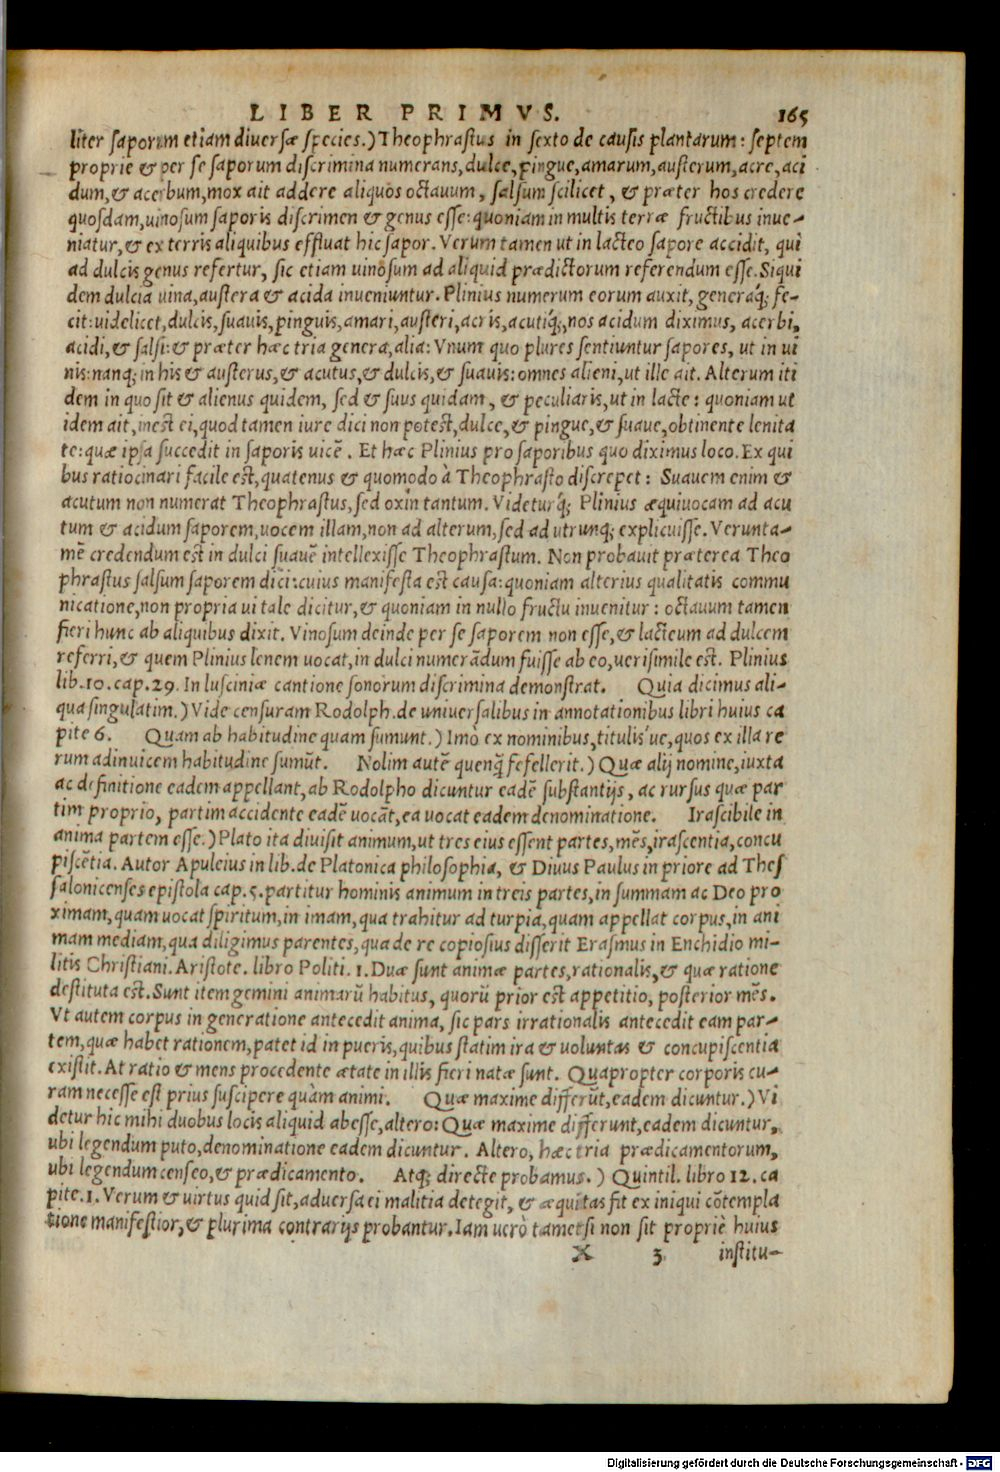 LIBER PRIMVS. 165
liter saporem etiam diuersæ species.) Theophrastus in sexto de causis plantarum: septem
proprie & per se saporum discrimina numerans, dulce, pingue, amarum, austerum, acre, aci
dum, & acerbum, mox ait addere aliquos octauum, salsum scilicet, & præter hos credere
quosdam, uinosum saporis discrimen & genus esse: quoniam in multis terræ fructibus inue-
niatur, & ex terris aliquibus effluat hic sapor. Verum tamen ut in lacteo sapore accidit, qui
ad dulcis genus refertur, sic etiam uinosum ad aliquid prædictorum referendum esse. Siqui
dem dulcia uina, austera & acida inueniuntur. Plinius numerum eorum auxit, generaq́; fe-
cit: uidelicet, dulcis, suauis, pinguis, amari, austeri, acris, acutiq́;, nos acidum diximus, acerbi,
acidi, & salsi: & præter hæc tria genera, alia: Vnum quo plures sentiuntur sapores, ut in ui
nis: nanq; in his & austerus, & acutus, & dulcis, & suauis: omnes alieni, ut ille ait. Alterum iti
dem in quo sit & alienus quidem, sed & suus quidam, & peculiaris, ut in lacte: quoniam ut
idem ait, inest ei, quod tamen iure dici non potest, dulce, & pingue, & suaue, obtinente lenita
te: quæ ipsa succedit in saporis uicē. Et hæc Plinius pro saporibus quo diximus loco. Ex qui
bus ratiocinari facile est, quatenus & quomodo à Theophrasto discrepet: Suauem enim &
acutum non numerat Theophrastus, sed oxin tantum. Videturq́; Plinius æquiuocam ad acu
tum & acidum saporem, uocem illam, non ad alterum, sed ad utrunq; explicuisse. Verunta-
mē credendum est in dulci suauē intellexisse Theophrastum. Non probauit præterea Theo
phrastus salsum saporem dici: cuius manifesta est causa: quoniam alterius qualitatis commu
nicatione, non propria ui tale dicitur, & quoniam in nullo fructu inuenitur: octauum tamen
fieri hunc ab aliquibus dixit. Vinosum deinde per se saporem non esse, & lacteum ad dulcem
referri, & quem Plinius lenem uocat, in dulci numerādum fuisse ab eo, uerisimile est. Plinius
lib. 10. cap. 29. In lusciniæ cantione sonorum discrimina demonstrat. Quia dicimus ali-
qua singulatim.) Vide censuram Rodolph. de uniuersalibus in annotationibus libri huius ca
pite 6. Quam ab habitudine quam sumunt.) Imò ex nominibus, titulis'ue, quos ex illa re
rum adinuicem habitudine sumūt. Nolim autē quenq̃ fefellerit.) Quæ alij nomine, iuxta
ac definitione eadem appellant, ab Rodolpho dicuntur eadē substantijs, ac rursus quæ par
tim proprio, partim accidente eadē uocāt, ea uocat eadem denominatione. Irascibile in
anima partem esse.) Plato ita diuisit animum, ut tres eius essent partes, mēs, irascentia, concu
piscētia. Autor Apuleius in lib. de Platonica philosophia, & Diuus Paulus in priore ad Thes
salonicenses epistola cap. 5. partitur hominis animum in treis partes, in summam ac Deo pro
ximam, quam uocat spiritum, in imam, qua trahitur ad turpia, quam appellat corpus, in ani
mam mediam, qua diligimus parentes, qua de re copiosius disserit Erasmus in Enchidio mi-
litis Christiani. Aristote. libro Politi. 1. Duæ sunt animæ partes, rationalis, & quæ ratione
destituta est. Sunt item gemini animarū habitus, quorū prior est appetitio, posterior mēs.
Vt autem corpus in generatione antecedit anima, sic pars irrationalis antecedit eam par-
tem, quæ habet rationem, patet id in pueris, quibus statim ira & uoluntas & concupiscentia
existit. At ratio & mens procedente ætate in illis fieri natæ sunt. Quapropter corporis cu-
ram necesse est prius suscipere quàm animi. Quæ maxime differūt, eadem dicuntur.) Vi
detur hic mihi duobus locis aliquid abesse, altero: Quæ maxime differunt, eadem dicuntur,
ubi legendum puto, denominatione eadem dicuntur. Altero, hæc tria prædicamentorum,
ubi legendum censeo, & prædicamento. Atq; directe probamus.) Quintil. libro 12. ca
pite. 1. Verum & uirtus quid sit, aduersa ei malitia detegit, & æquitas fit ex iniqui cōtempla
tione manifestior, & plurima contrarijs probantur. Iam uerò tametsi non sit propriè huius
X 3 institu-
Digitalisierung gefördert durch die Deutsche Forschungsgemeinschaft - DFG